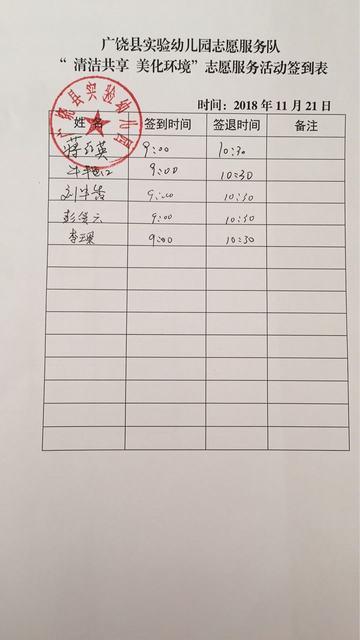 广饶县实验幼儿园志愿服务队
“ 清洁共享 美化环境”志愿服务活动签到表
时间：2018 年 11 月 21 日
广饶县实验幼儿园
姓 名 签到时间 签退时间 备注
蒋红英 9:00 10:30
9:00 10:30
9:00 10:30
9:00 10:30
9:00 10:30